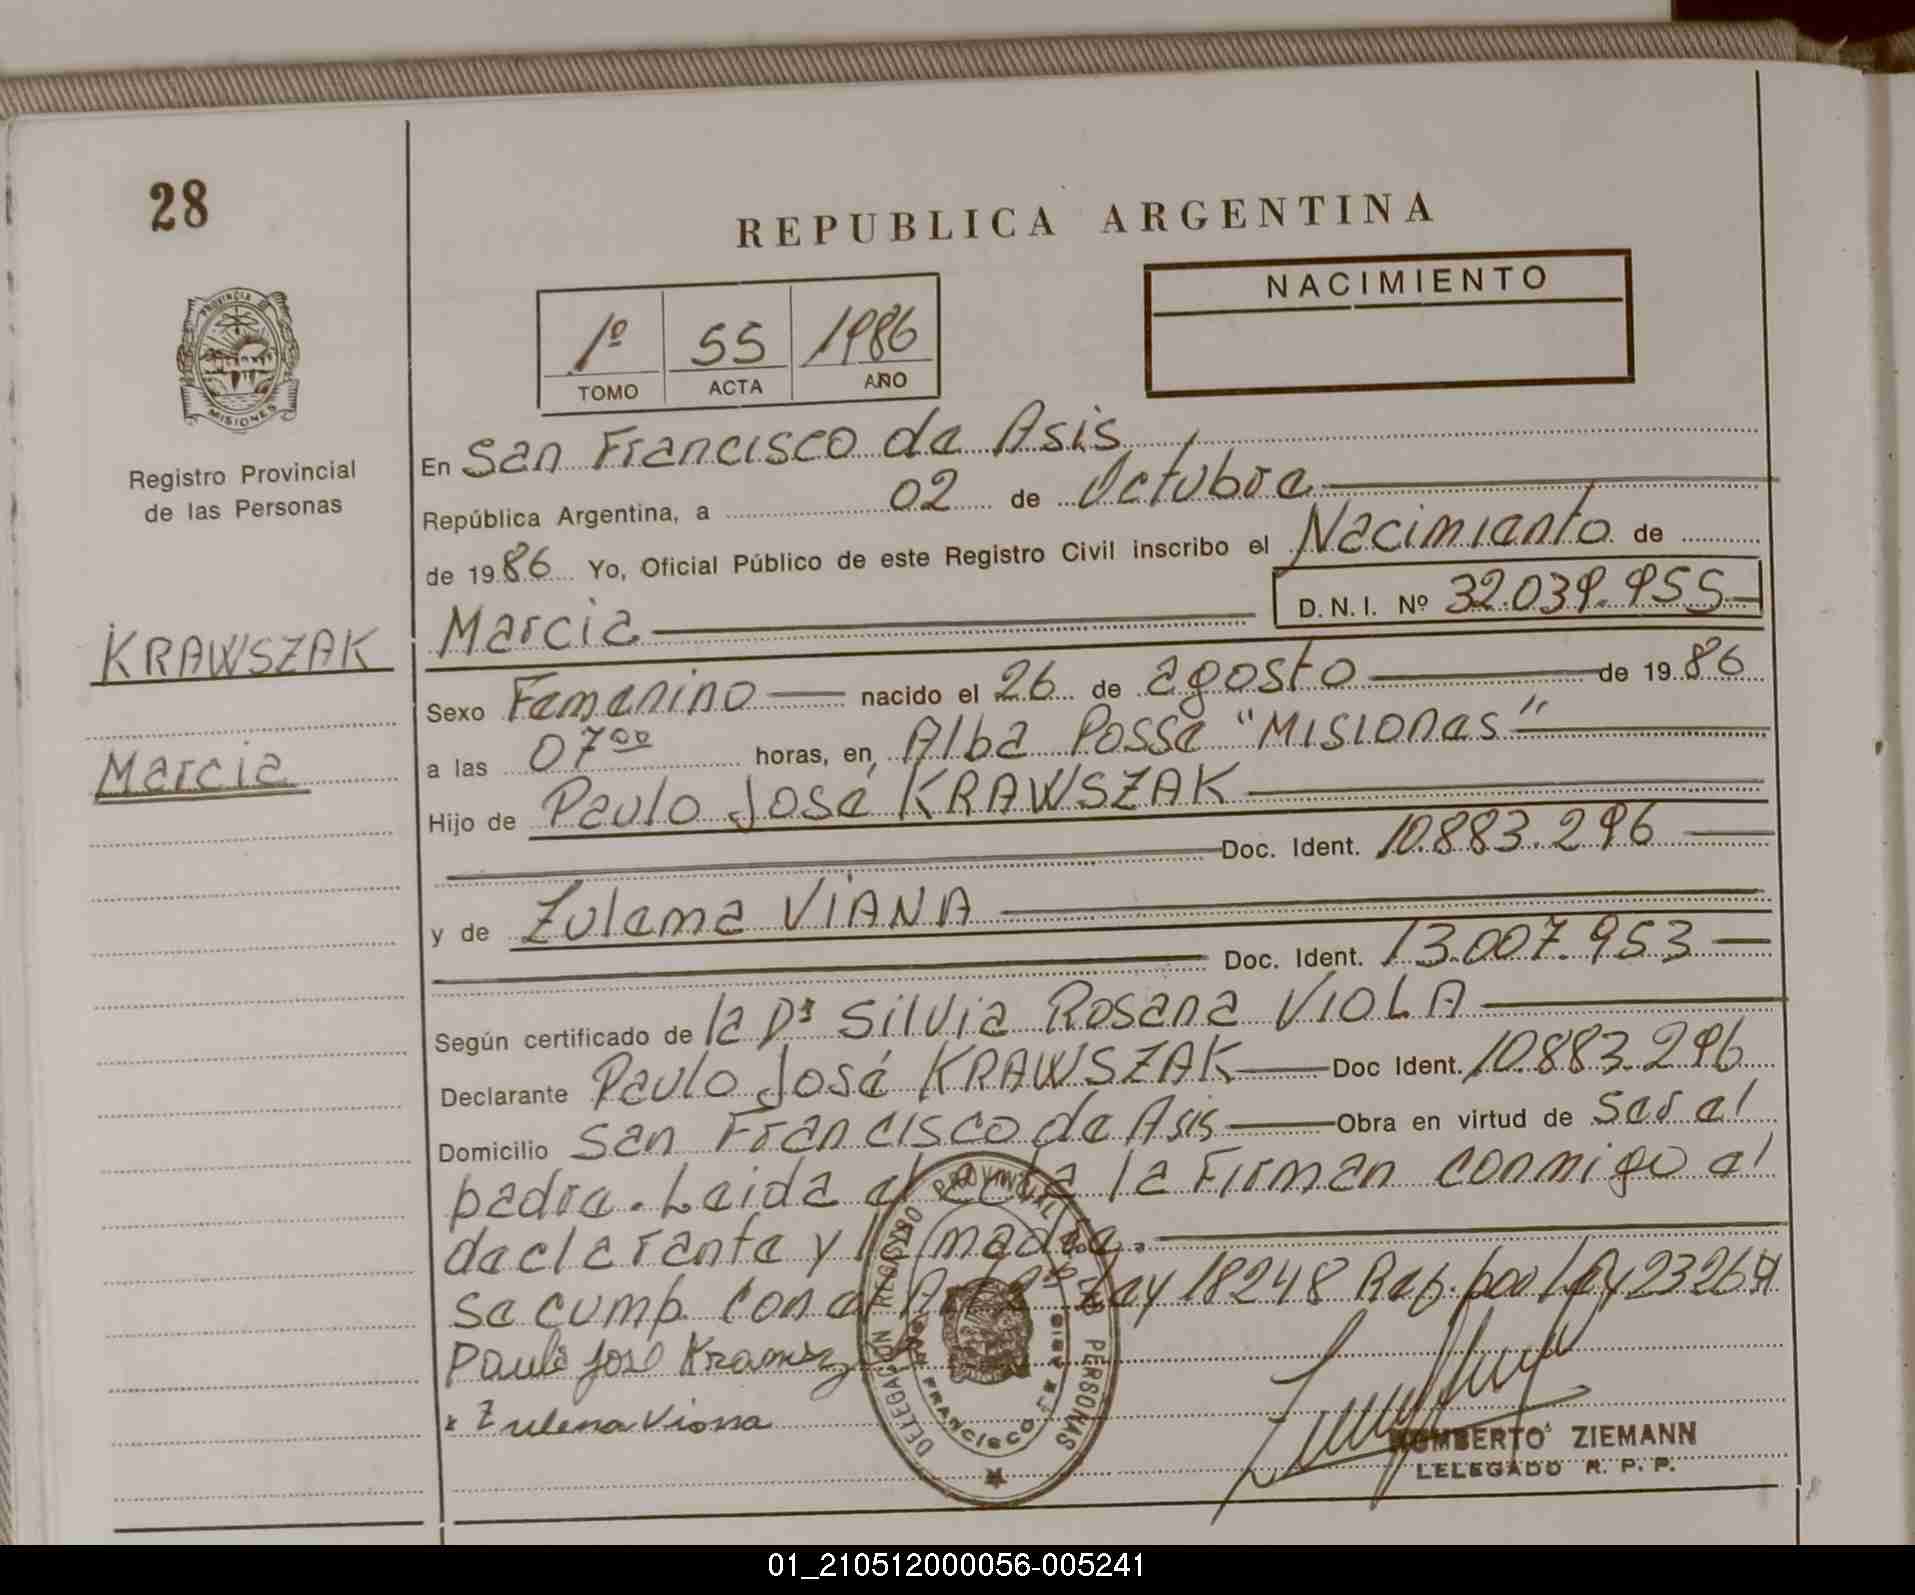 28
REPUBLICA ARGENTINA
NACIMIENTO
1º 55 1986
TOMO ACTA AÑO
PROVINCIA DE
MISIONES
Registro Provincial
de las Personas
KRAWSZAK
Marcia
En San Francisco de Asis
República Argentina, a 02 de Octubre
de 1986 Yo, Oficial Público de este Registro Civil inscribo el Nacimiento de
Marcia D.N.I. Nº 32.039.955
Sexo Femenino nacido el 26 de agosto de 1986
a las 07 00 horas, en Alba Posse "Misiones"
Hijo de Paulo José KRAWSZAK
Doc. Ident. 10.883.296
y de Zulema VIANA
Doc. Ident. 13.007.953
Según certificado de la Dª Silvia Rosana VIOLA
Declarante Paulo José KRAWSZAK Doc Ident. 10.883.296
Domicilio San Francisco de Asis Obra en virtud de Ser el
padre. Leida el acta la Firman conmigo el
declarante y la madre.
Se cump. con el Ley 18248 Ref. por Ley 23264
Paulo José
Zulema Viana
DELEGACION REGISTRO PROVINCIAL DE PERSONAS
SAN FRANCISCO DE ASIS
HUMBERTO ZIEMANN
LELEGADO R. P. P.
01_210512000056-005241